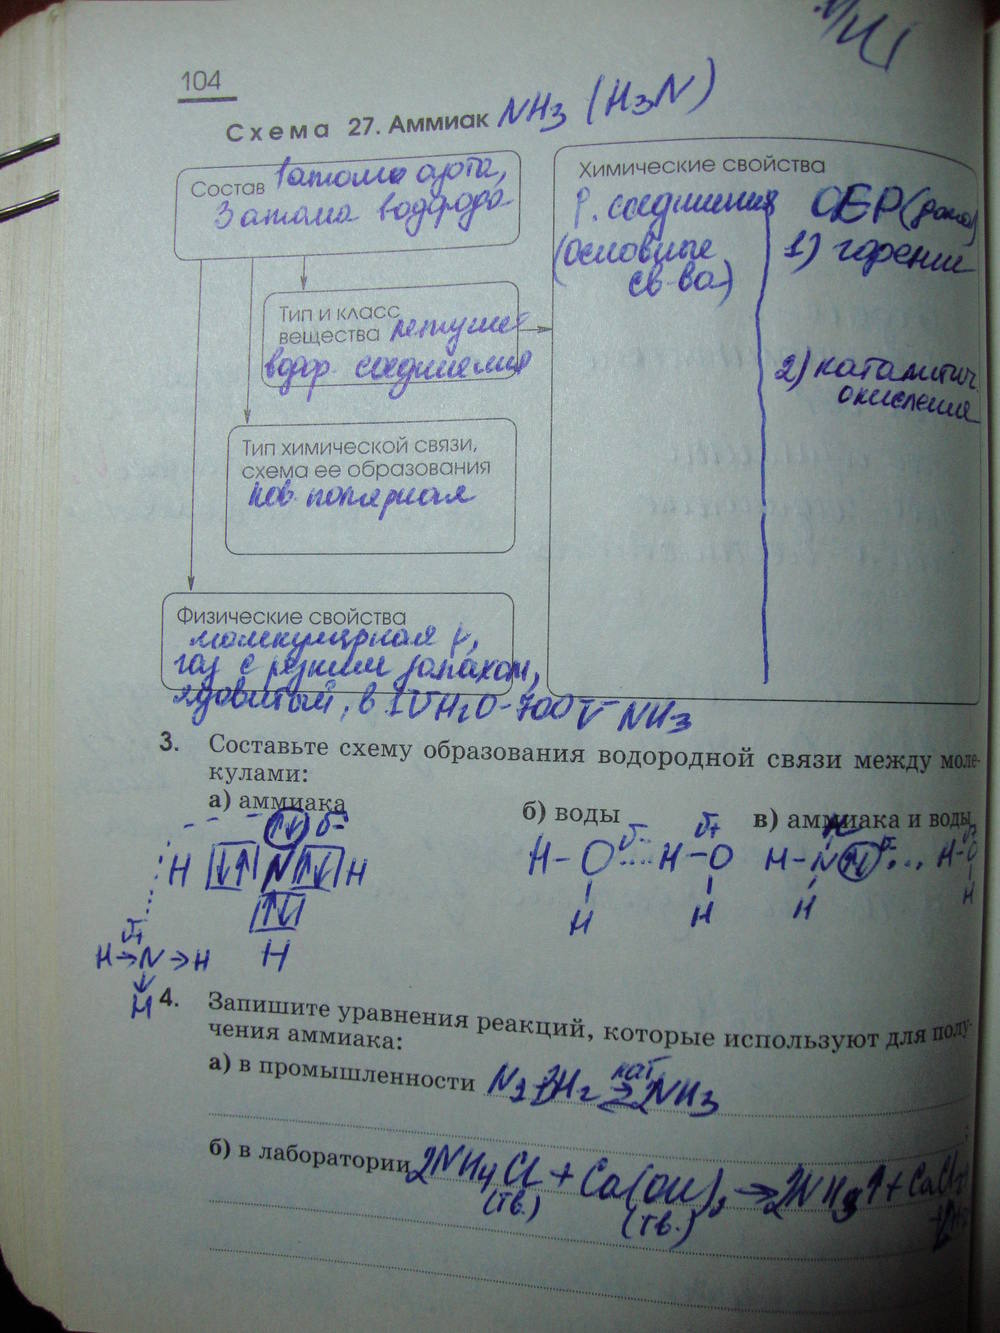 104
Схема 27. Аммиак NH3 (H3N)
Состав 1 атома азота,
3 атома водорода
Тип и класс
вещества летучее
водор. соединения
Тип химической связи,
схема ее образования
ков. полярная
Физические свойства
молекулярная
газ с резким запахом,
ядовитый, в 1V H2O - 700 V NH3
Химические свойства
Р. соединения
(основные
св-ва)
ОВР
1) горение
2) каталитич.
окисление
3. Составьте схему образования водородной связи между моле-
кулами:
а) аммиака
б) воды
в) аммиака и воды
H ↓↑ N ↑↓ H
↑↓
H
H→N→H
H
H-O .... H-O
H H
H-N ↑↓ ... H-O
H H
4. Запишите уравнения реакций, которые используют для полу-
чения аммиака:
а) в промышленности N2+3H2 ⇄ 2NH3
кат
б) в лаборатории 2NH4Cl + Ca(OH)2 → 2NH3↑ + CaCl2
(тв.) (тв.)